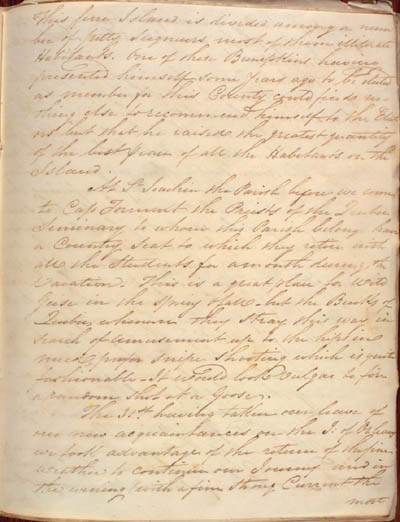 This fine Island is divided among a num
ber of petty Seigneurs, most of them illiterate
Habitants. One of these having
presented himself some years ago to the
as member for this County, could find no
thing else to recommend himself to the Elect
ors but that he raised the greatest quantity
of the best of all the Habitants on the
Island.
At St Joachim the Parish before we come
to Cap Torment the Priests of the Quebec
Seminary to whom this Parish belong have
a Country Seat to which they retire with
all the Students for a month during the
Vacation. This is a great place for Wild
Geese in the Spring & fall - but the Bucks of
Quebec whenever they stray this way in
search of amusement up to the in
mud prefer Snipe Shooting which is quite
fashionable - It would look Vulgar to fire
a random shot at a Goose.
The 31st having taken our leave of
our new acquaintances on the I. of Orleans
we took advantage of the return of the fine
weather to continue our Journey and in
the evening with a fine strong Current the
most